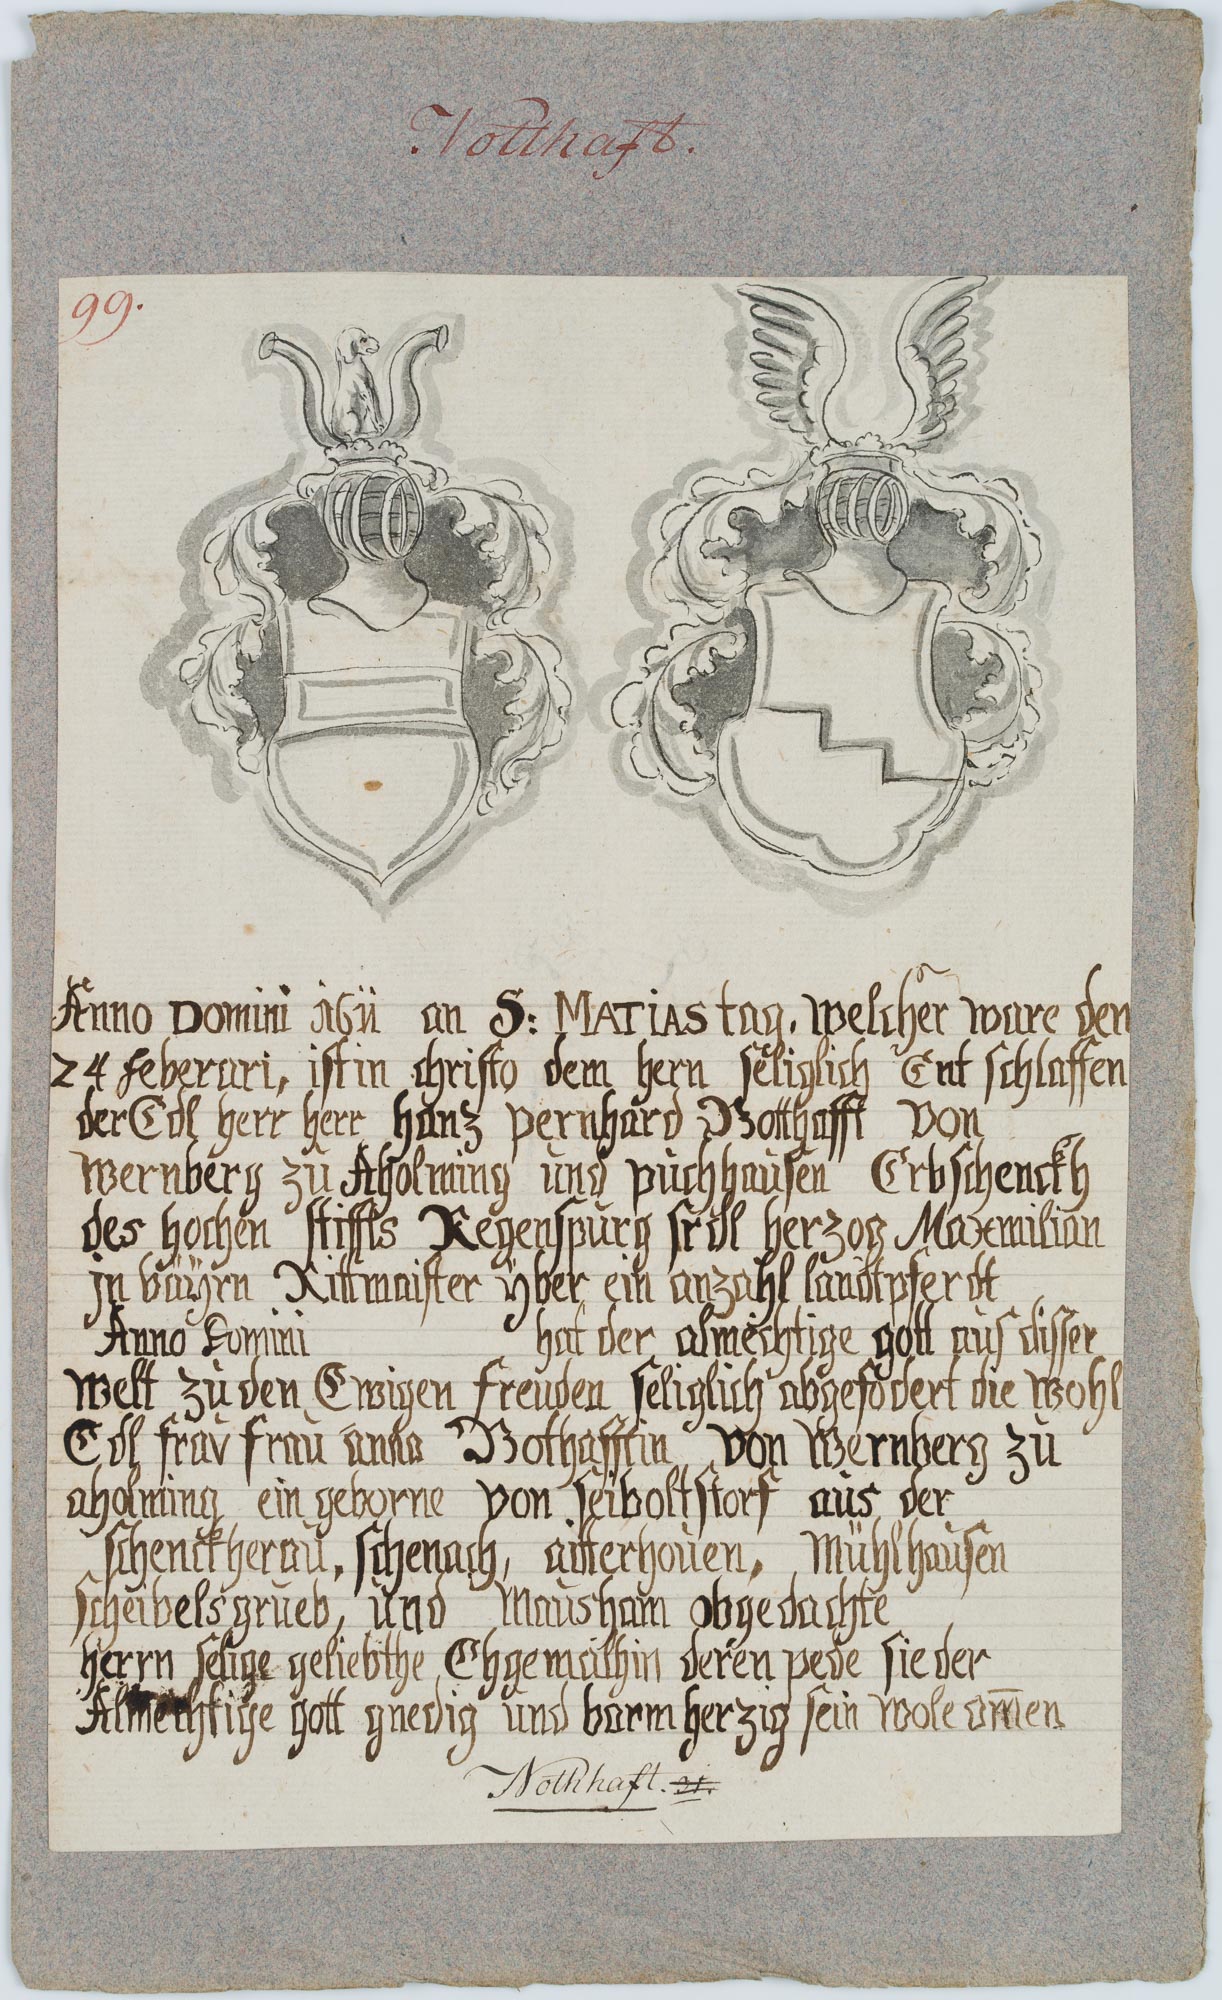 Notthaft.
99.
Anno Domini 1611 an S: MATIAS tag, welcher ware den
24 feberari, ist in christo dem hern seliglich Ent schlaffen
der Edl herr herr hanz pernhard Notthafft von
wernberg zu Aholming und puchhausen Erbschenckh
des hochen stiffts Regenspurg frdl herzog Maxmilian
jn bäyrn Rittmaister yber ein anzahl landtpferdt
Anno Domini hat der almechtige gott aus disser
welt zu den Ewigen freuden seliglich abgefodert die wohl
Edl frav frau anna Nothafftin von wernberg zu
aholming ein geborne von seiboltstorf aus der
schenckherau, schenach, aitterhouen, Mühlhausen
scheibelsgrueb, und Mausham obgedachte
herrn selige geliebthe Ehgemälhin deren pede sie der
Almechtige gott gnedig und barmherzig sein wole am̅en
Nothhaft. 21.